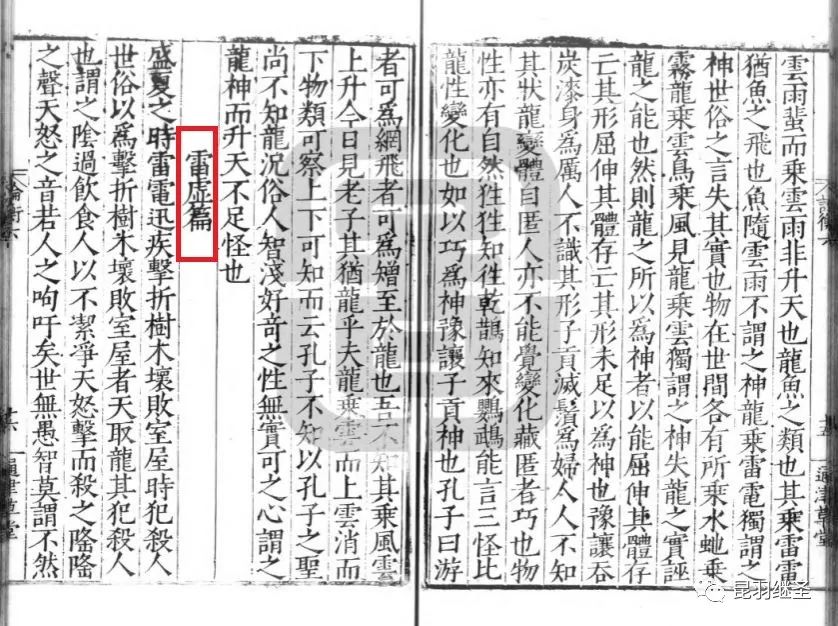 雲雨蜚而乘雲雨非升天也龍魚之類也其乘雷電
猶魚之飛也魚隨雲雨不謂之神龍乘雷電獨謂之
神世俗之言失其實也物在世間各有所乘水虵乘
霧龍乘雲鳥乘風見龍乘雲獨謂之神失龍之實誣
龍之能也然則龍之所以為神者以能屈伸其體存
亡其形屈伸其體存亡其形未足以為神也豫讓吞
炭漆身為厲人不識其形子貢滅鬚為婦人人不知
其狀龍變體自匿人亦不能覺變化藏匿者巧也物
性亦有自然狌狌知徃乾鵲知來鸚鵡能言三怪比
龍性變化也如以巧為神豫讓子貢神也孔子曰游
者可為網飛者可為矰至於龍也吾不知其乘風雲
上升今日見老子其猶龍乎夫龍乘雲而上雲消而
下物類可察上下可知而云孔子不知以孔子之聖
尚不知龍況俗人智淺好奇之性無實可之心謂之
龍神而升天不足怪也
雷虛篇
盛夏之時雷電迅疾擊折樹木壞敗室屋時犯殺人
世俗以為擊折樹木壞敗室屋者天取龍其犯殺人
也謂之陰過飲食人以不潔淨天怒擊而殺之隆隆
之聲天怒之音若人之呴吁矣世無愚智莫謂不然
通津草堂
昆羽继圣